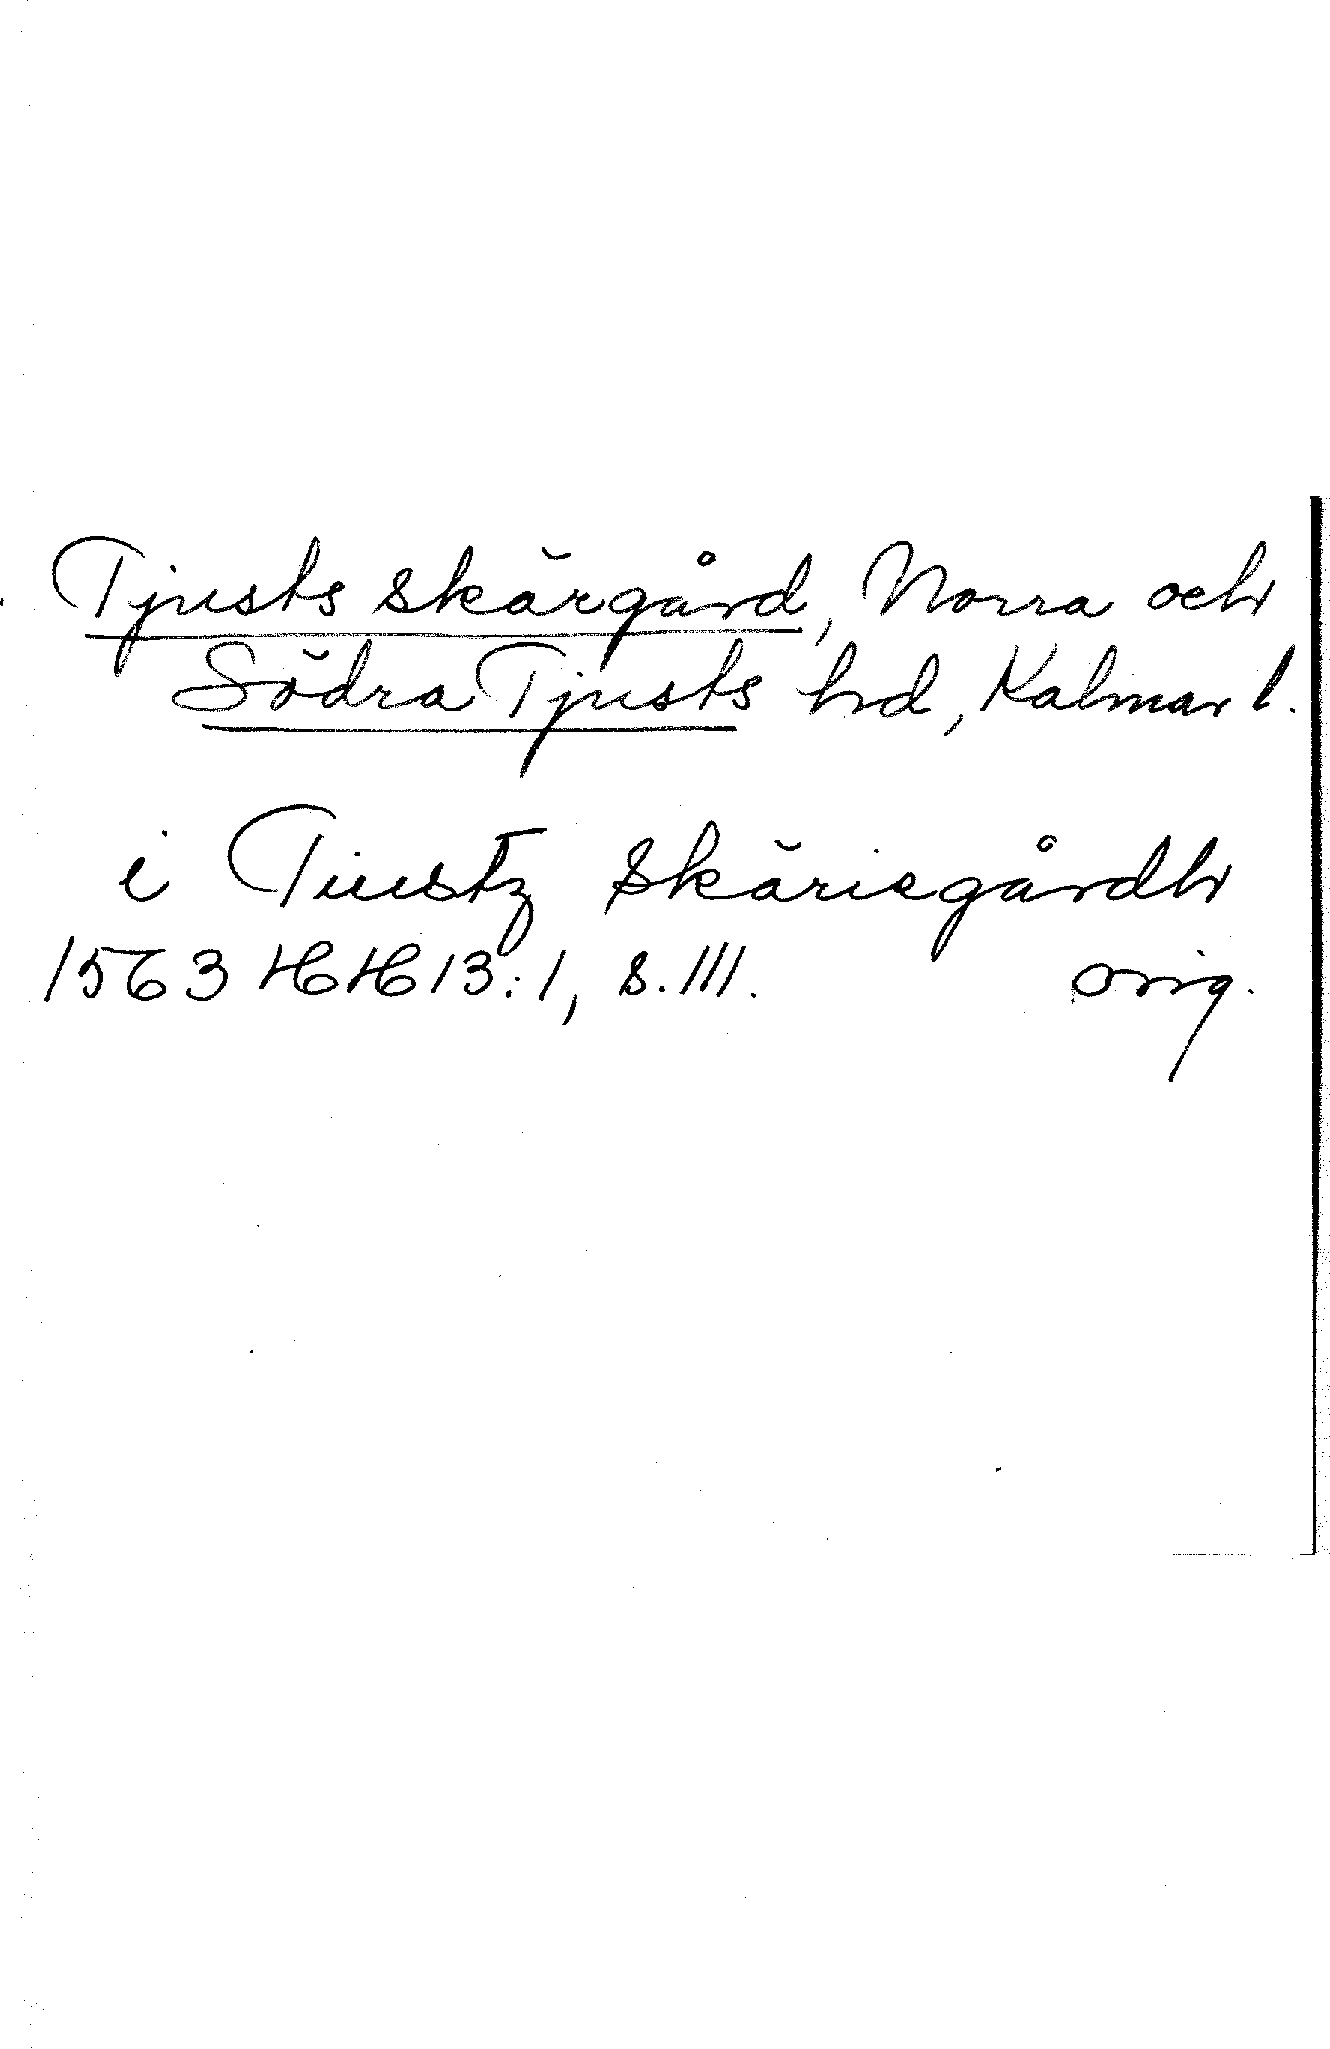 Tjusts skärgård, Norra och
Södra Tjusts hd, Kalmar l.
i Tiustz skäriegårdh
1563 HH 13:1, s. 111. orig.